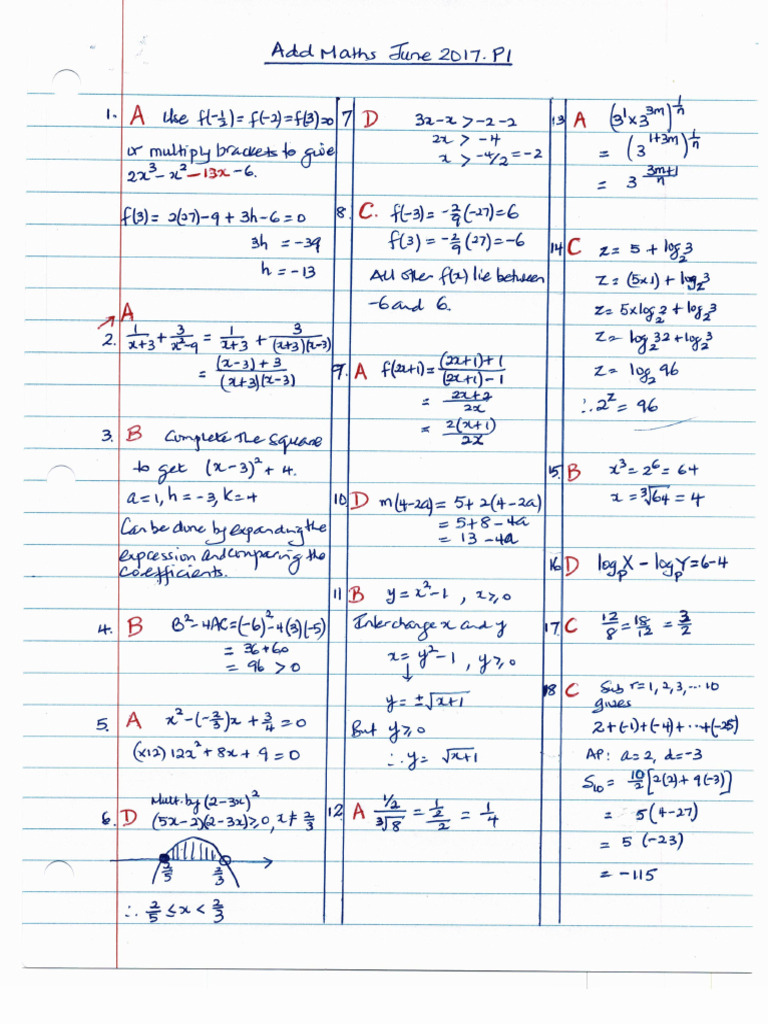 Add Maths June 2017. P1
1. A Use f(-½) = f(-2) = f(3) = 0
or multiply brackets to give
2x³ - x² - 13x - 6.
f(3) = 2(27) - 9 + 3h - 6 = 0
3h = -39
h = -13
A
2. 1/(x+3) + 3/(x²-9) = 1/(x+3) + 3/((x+3)(x-3))
= ((x-3) + 3)/((x+3)(x-3))
3. B Complete the square
to get (x-3)² + 4.
a = 1, h = -3, k = 4
Can be done by expanding the
expression and comparing the
coefficients.
4. B B² - 4AC = (-6)² - 4(3)(-5)
= 36 + 60
= 96 > 0
5. A x² - (-2/3)x + 3/4 = 0
(x12) 12x² + 8x + 9 = 0
Mult. by (2-3x)²
6. D (5x-2)(2-3x) ≥ 0, x ≠ 2/3
2/5 2/3
∴ 2/5 ≤ x < 2/3
7 D 3x - x > -2 - 2
2x > -4
x > -4/2 = -2
8. C. f(-3) = -2/9(-27) = 6
f(3) = -2/9(27) = -6
All other f(x) lie between
-6 and 6.
9. A f(2x+1) = ((2x+1)+1)/((2x+1)-1)
= (2x+2)/2x
= 2(x+1)/2x
10 D m(4-2a) = 5 + 2(4-2a)
= 5 + 8 - 4a
= 13 - 4a
11 B y = x² - 1, x ≥ 0
Interchange x and y
x = y² - 1, y ≥ 0
↓
y = ±√(x+1)
But y ≥ 0
∴ y = √(x+1)
12. A (1/2)/∛8 = (1/2)/2 = 1/4
13 A (3¹ x 3³ᵐ)^(1/n)
= (3^(1+3m))^(1/n)
= 3^((3m+1)/n)
14 C z = 5 + log₂3
z = (5x1) + log₂3
z = 5xlog₂2 + log₂3
z = log₂32 + log₂3
z = log₂96
∴ 2^z = 96
15. B x³ = 2⁶ = 64
x = ∛64 = 4
16 D logₚX - logₚY = 6-4
17. C 12/8 = 18/12 = 3/2
18 C Sub r = 1, 2, 3, ... 10
gives
2 + (-1) + (-4) + ... + (-25)
AP: a = 2, d = -3
S₁₀ = 10/2[2(2) + 9(-3)]
= 5(4-27)
= 5(-23)
= -115